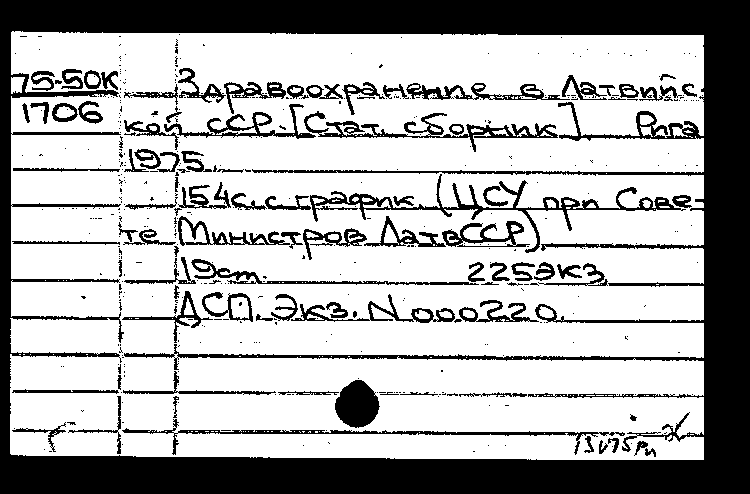 75-50К Здравоохранение в Латвийс-
1706 кой ССР. [Стат. сборник] Рига
1975.
154с. с график. (ЦСУ при Сове-
те Министров ЛатвССР).
19см. 225экз
ДСП. Экз. N 000220.